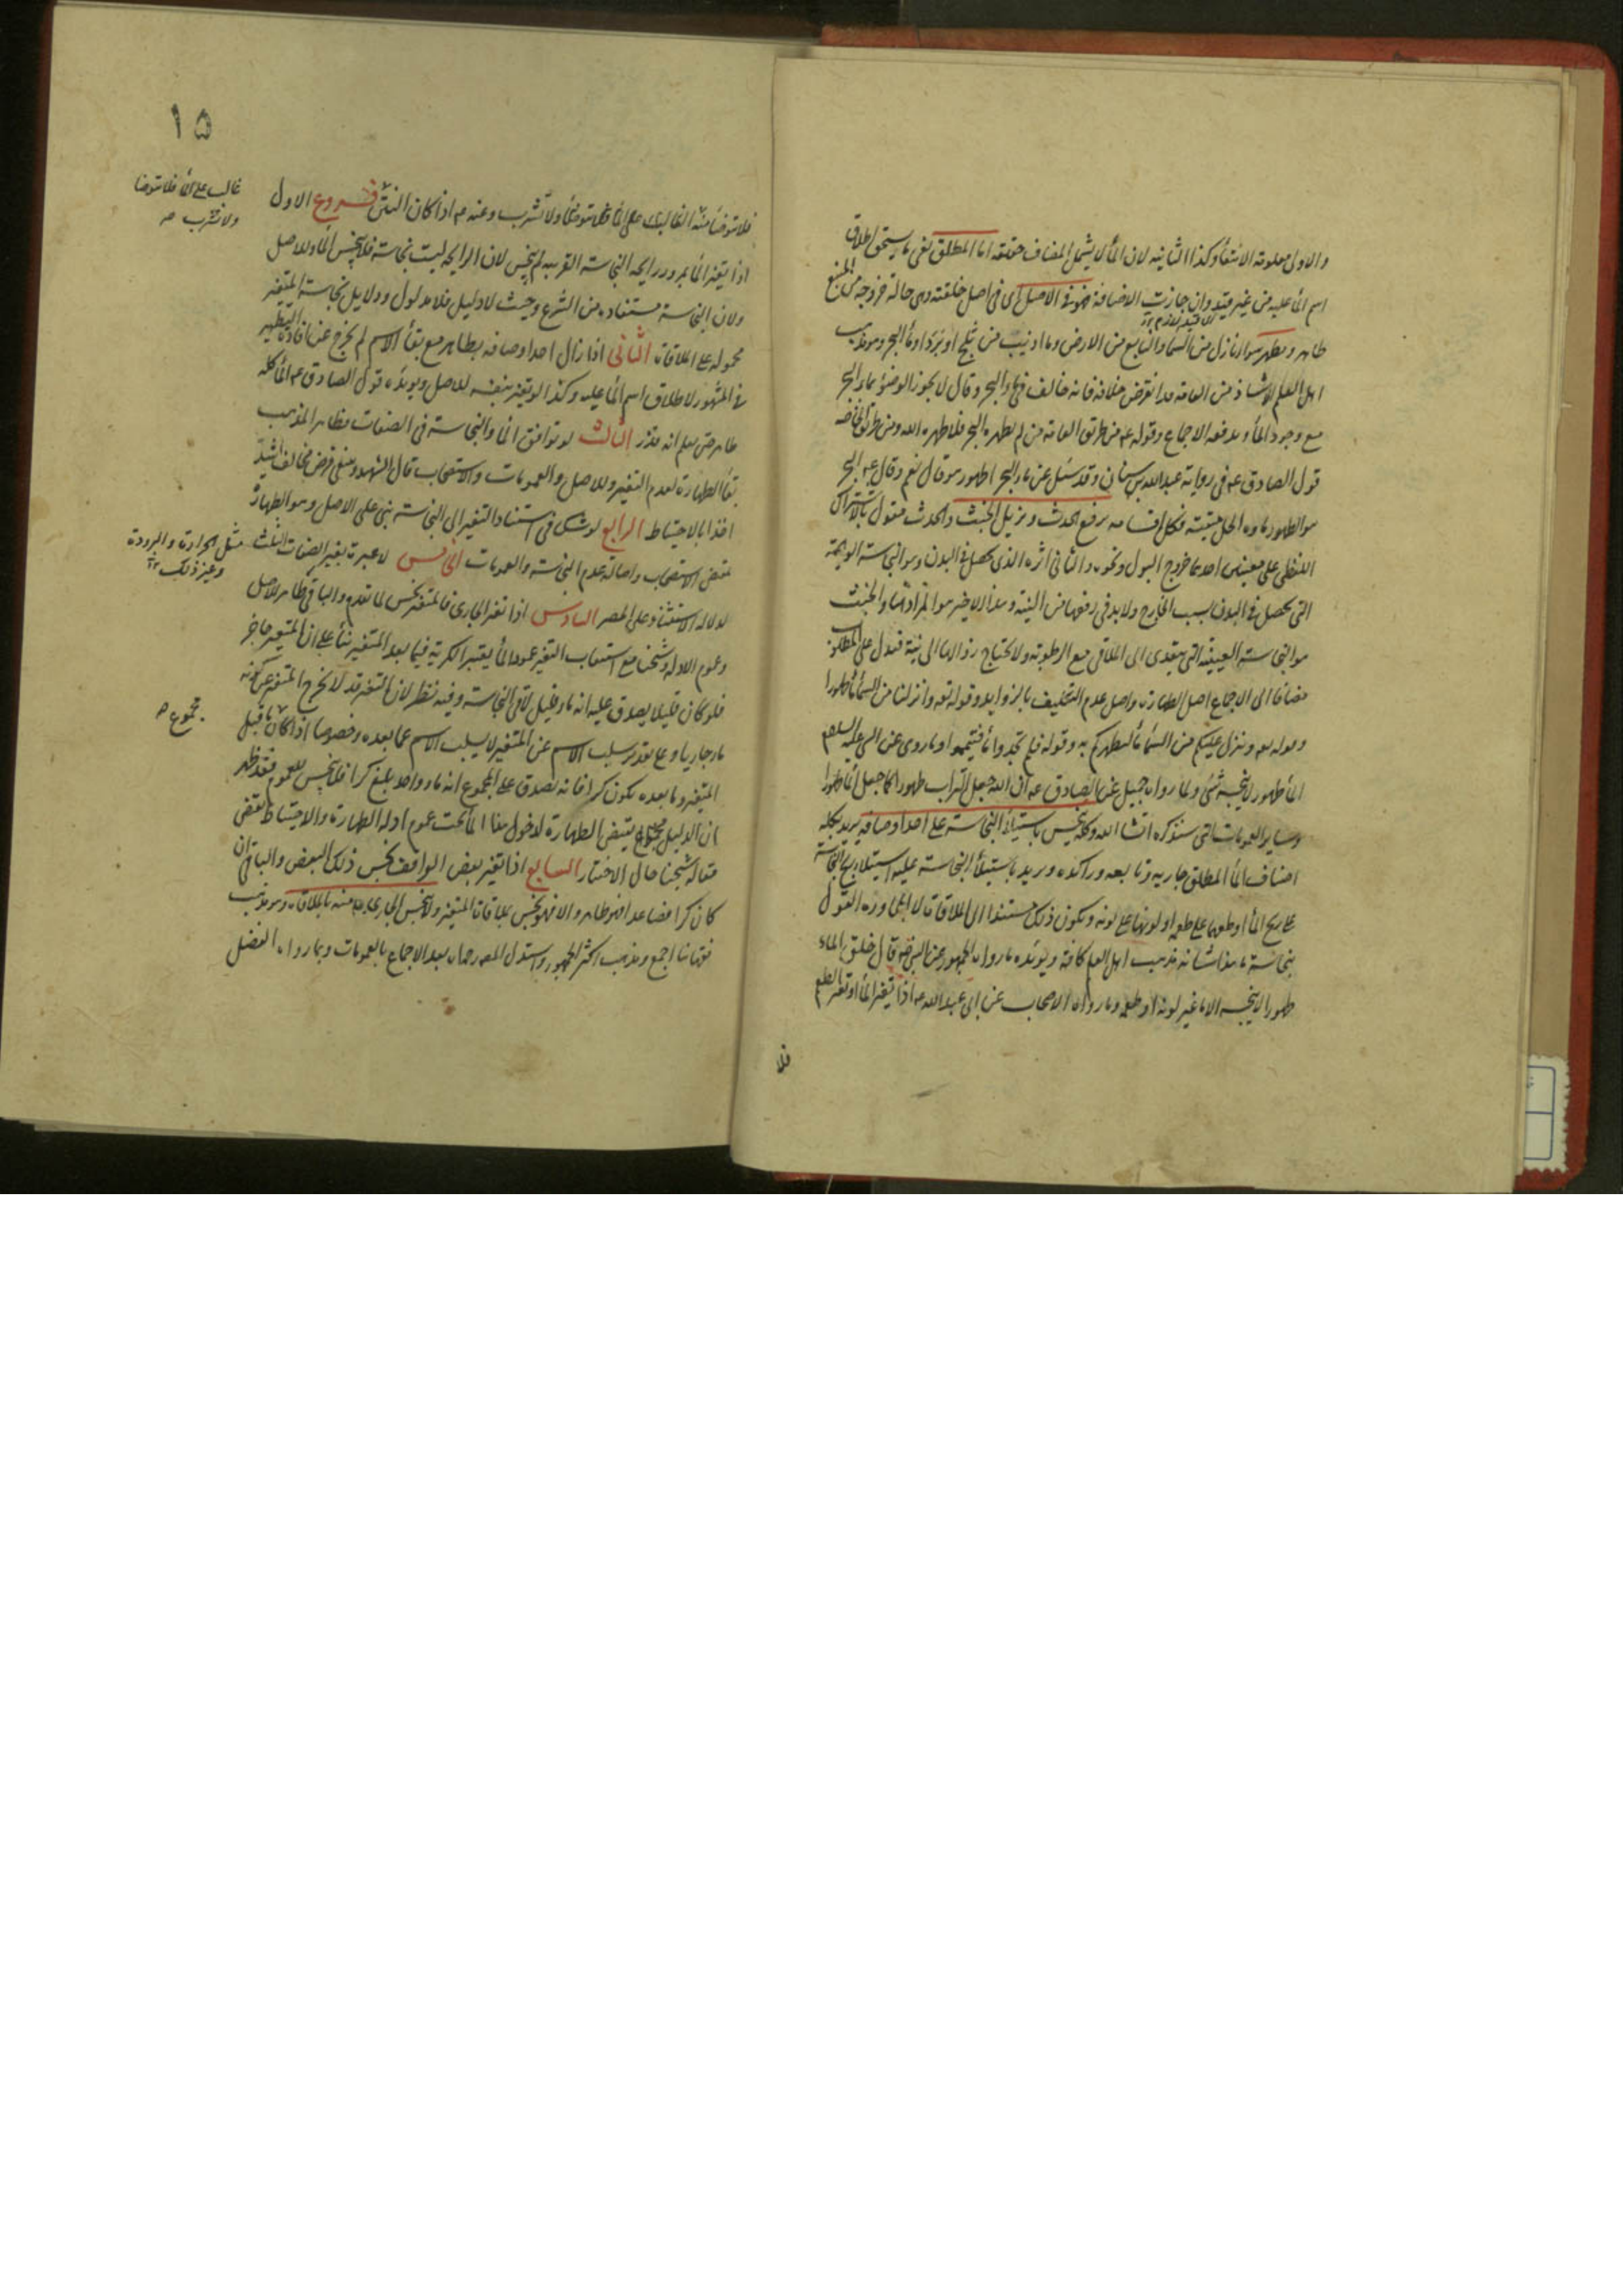 والاولى معلومة الانتفاء وكذا الثانية لان الماء لا يشمل المضاف حقيقة اما المطلق نعنى ما يستحق اطلاق
اسم الماء عليه من غير قيد وان جازت الاضافة فهو فى الاصل اى فى اصل خلقته وهى حالة خروجه من المنبع
طاهر ومطهر سواء نازل من السماء والنابع من الارض وما اذيب من ثلج او برد او ماء البحر وهو مذهب
اهل العلم الا شاذ من العامة قد انقرض خلافه فانه خالف فى ماء البحر وقال لا يجوز الوضوء بماء البحر
مع وجود الماء ويدفعه الاجماع وقوله ع من طريق العامة من لم يطهره البحر فلا طهره الله ومن طريق الخاصة
قول الصادق ع فى رواية عبد الله بن سنان وقد سئل عن ماء البحر اطهور هو قال نعم وقال ع البحر
هو الطهور ماؤه الحل ميتته فكل اقسامه يرفع الحدث ويزيل الخبث والحدث مقول بالاشتراك
اللفظى على معنيين احدهما خروج البول ونحوه والثانى اثره الذى يحصل فى البدن وهو النجاسة الوهمية
التى يحصل فى البدن بسبب الخارج ولا بد فى رفعها من النية وهذا الاخير هو المراد هنا والخبث
هو النجاسة العينية التى يتعدى الى الملاقى مع الرطوبة ولا يحتاج زوالها الى نية فيدل على المطلوب
مضافا الى الاجماع اصل الطهارة واصل عدم التكليف بالزوايد وقوله تعه وانزلنا من السماء ماء طهورا
وقوله تعه وينزل عليكم من السماء ماء ليطهركم به وقوله فلم تجدوا ماء فتيمموا وما روى عن النبى عليه السلام
الماء طهور لا ينجسه شئ ولما رواه جميل عن الصادق ع ان الله جعل التراب طهورا كما جعل الماء طهورا
وساير العمومات التى سنذكره انشا الله وكله ينجس باستيلاء النجاسة على احد اوصافه يريد بكله
اصناف الماء المطلق جاريه ونابعه وراكده ويريد باستيلاء النجاسة عليه استيلاء ريح النجاسة
على ريح الماء او طعمها على طعمه او لونها على لونه ويكون ذلك مستندا الى الملاقات لا المجاورة القول
بنجاسة ما هذا شانه مذهب اهل العلم كافة ويؤيده ما رواه الجمهور عن النبى ص قال خلق الماء
طهورا لا ينجسه الا ما غير لونه او طعمه وما رواه الاصحاب عن ابى عبد الله ع اذا تغير الماء او تغير الطعم
فلا
١٥
فلا توضأ منه وعنه ع اذا كان النتن فروع الاول
غالب على الماء فلا تتوضا
ولا تشرب ص
اذا تغير الماء بمرور رايحة النجاسة القريبة لم ينجس لان الرايحة ليست نجاسة فلا ينجس الماء وللاصل
ولان النجاسة مستفادة من الشرع وحيث لا دليل فلا مدلول ودلايل نجاسة المتغير
محمولة على الملاقات الثانى اذا زال احد اوصافه بطاهر مع بقاء الاسم لم يخرج عن افادة التطهير
فى المشهور لاطلاق اسم الماء عليه وكذا لو تغير بنفسه للاصل ويؤيده قول الصادق ع الماء كله
طاهر حتى يعلم انه قذر الثالث لو توافق الماء والنجاسة فى الصفات فظاهر المذهب
بقاء الطهارة لعدم التغير وللاصل والعمومات والاستصحاب قال الشهيد وينبغى فرض مخالف اشد
اخذا بالاحتياط الرابع لو شك فى استناد التغير الى النجاسة بنى على الاصل وهو الطهارة
بمقتضى الاستصحاب واصالة عدم النجاسة والعمومات الخامس لا عبرة بغير الصفات الثلث
مثل الحرارة والبرودة
وغير ذلك
لدلالة الاستثناء على الحصر السادس اذا تغير الجارى فالمتغير نجس لما تقدم والباقى طاهر للاصل
وعموم الادلة وشيخنا مع استيعاب التغير عمود الماء يعتبر الكرية فيما بعد المتغير بناء على ان المتغير حاجز
فلو كان قليلا يصدق عليه انه ماء قليل لاقى النجاسة وفيه نظر لان التغير قد لا يخرج المتغير عن كونه
ماء جاريا وعلى تقدير سلب الاسم عن المتغير لا يسلب الاسم عما بعده وخصوصا اذا كان ما قبل
مجموع ص
المتغير وما بعده يكون كرا فانه يصدق على المجموع انه ماء واحد بلغ كرا فلا ينجس للعموم فقد ظهر
ان الدليل يقتضى الطهارة لدخول هذا الماء تحت عموم ادلة الطهارة والاحتياط يقتضى
مقالة شيخنا حال الاختيار السابع اذا تغير بعض الواقف نجس ذلك البعض والباقى ان
كان كرا فصاعدا فهو طاهر والا فهو نجس بملاقات المتغير ولا ينجس الجارى منه بالملاقاة وهو مذهب
فقهائنا اجمع ومذهب اكثر الجمهور واستدل المصه رحمه الله بعد الاجماع بالعمومات وبما رواه الفضل